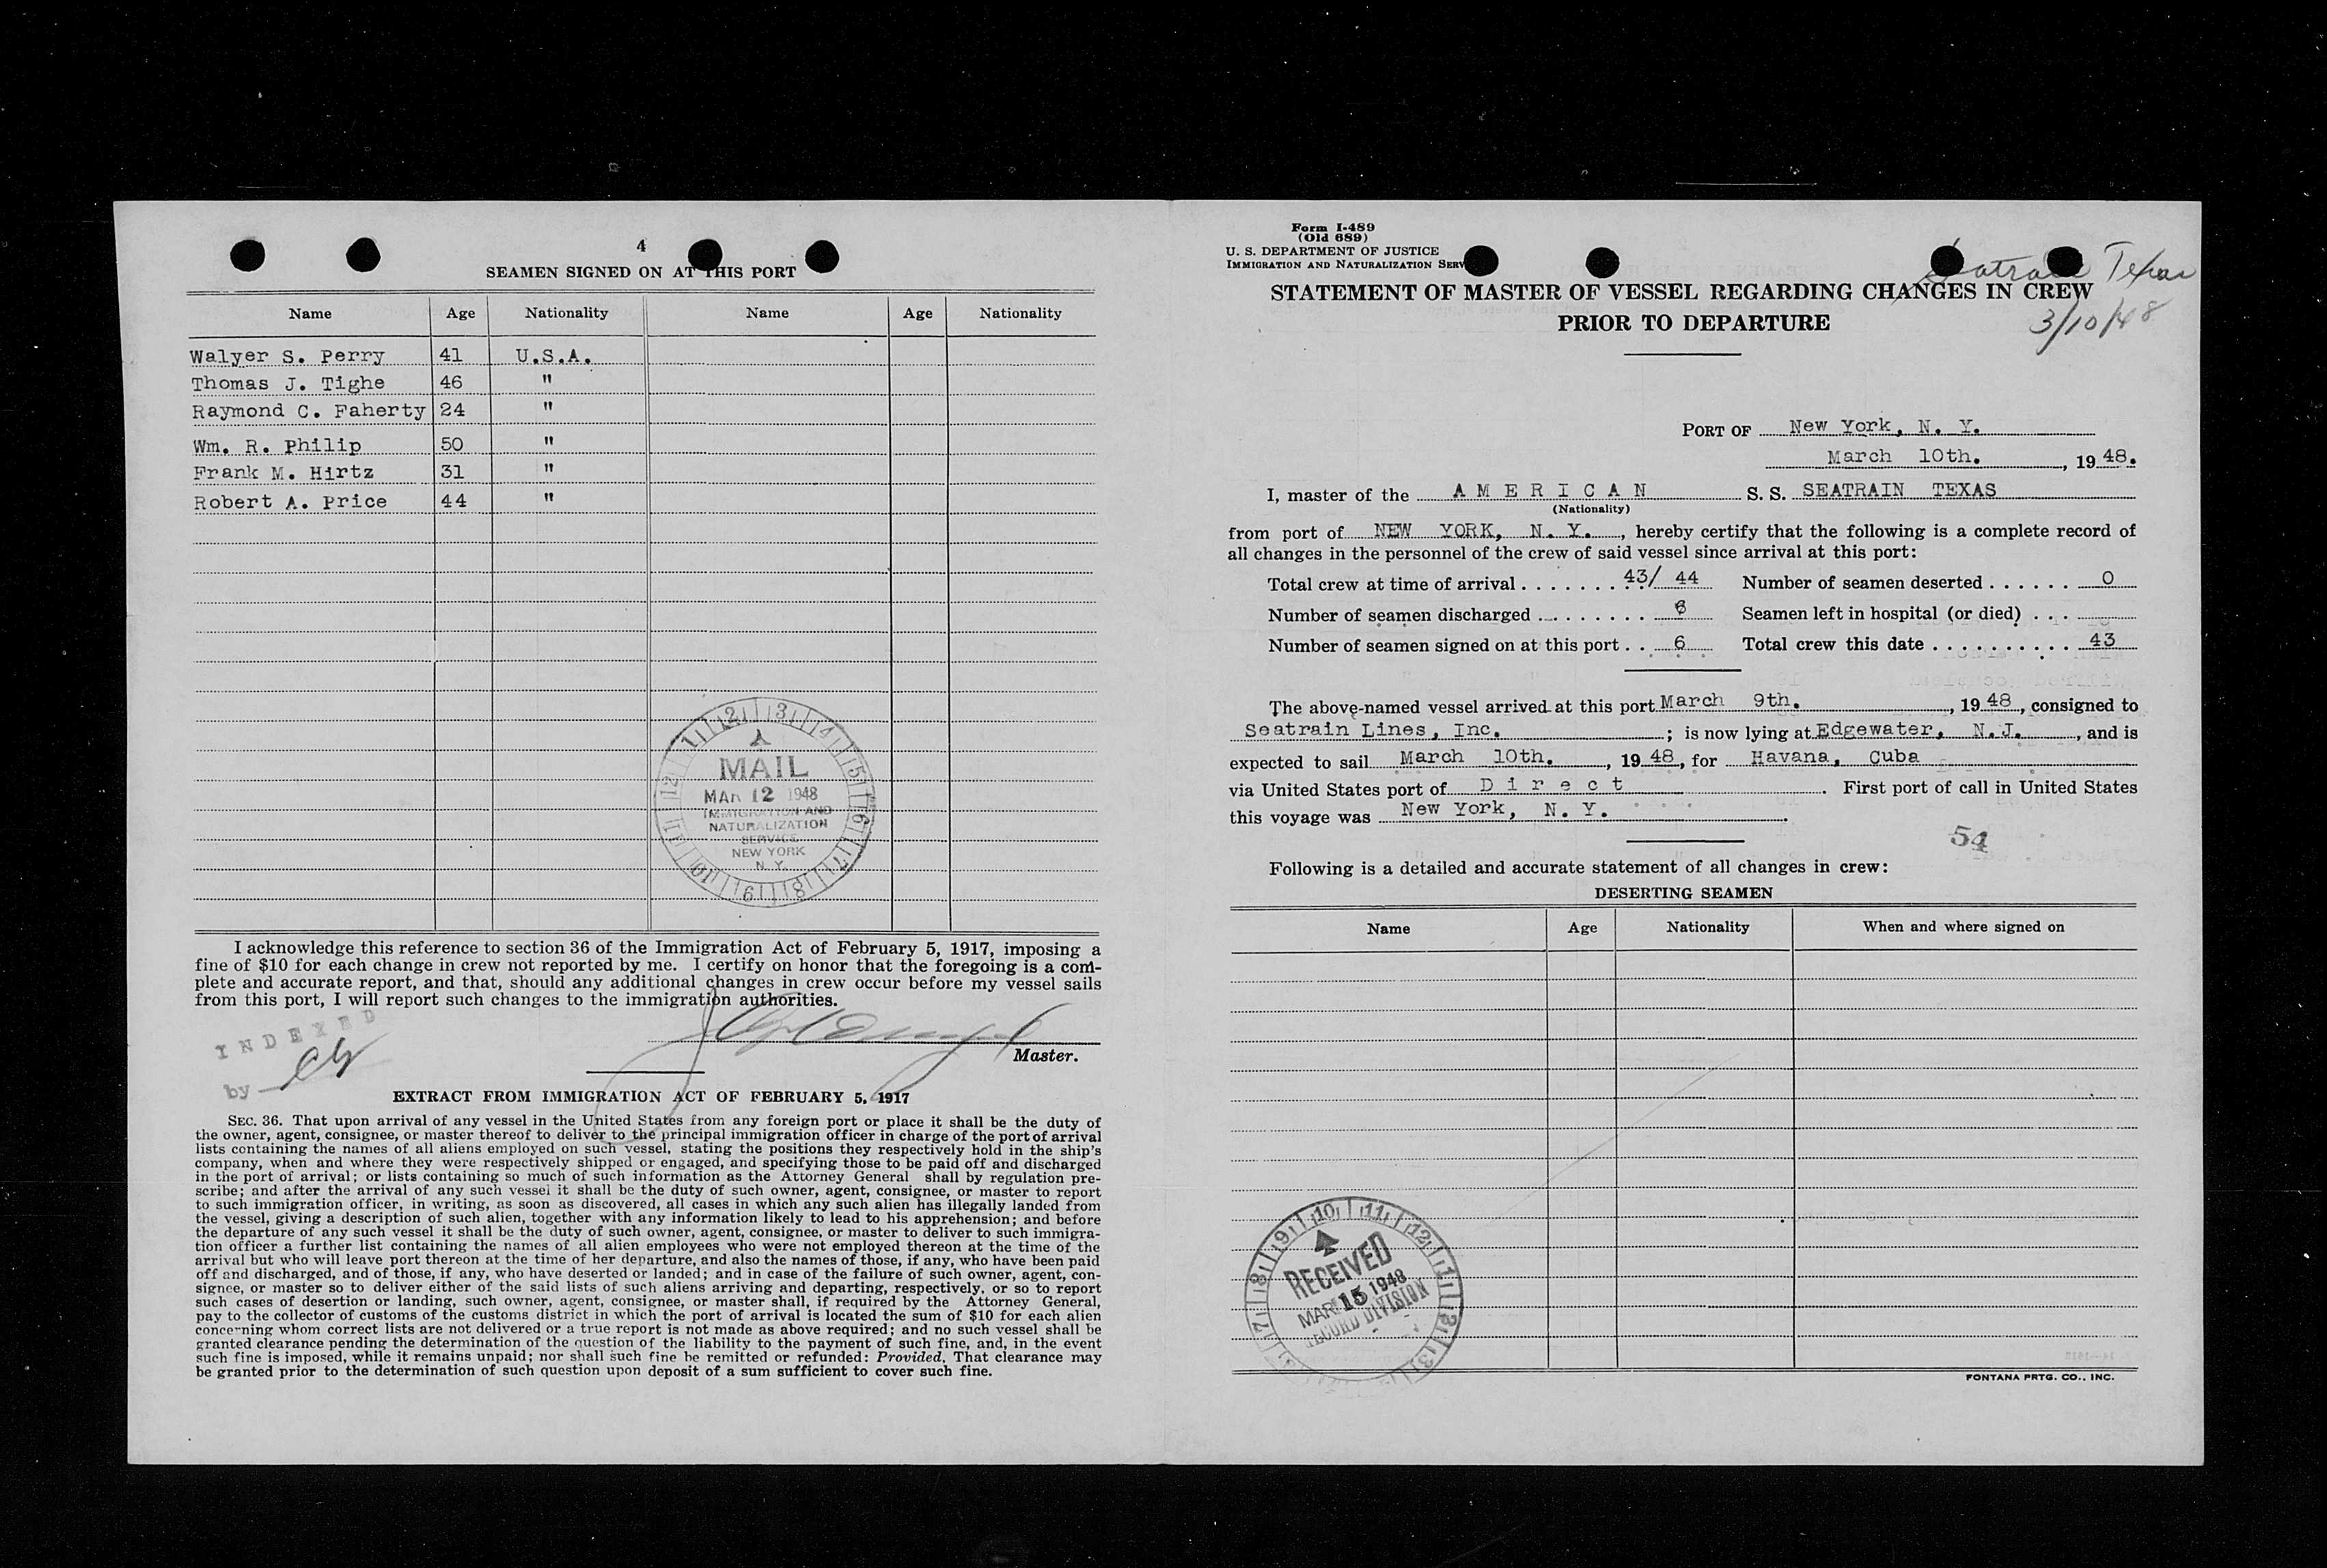 4
SEAMEN SIGNED ON AT THIS PORT
Name Age Nationality Name Age Nationality
Walyer S. Perry 41 U.S.A.
Thomas J. Tighe 46 "
Raymond C. Faherty 24 "
Wm. R. Philip 50 "
Frank M. Hirtz 31 "
Robert A. Price 44 "
MAIL
MAR 12 1948
IMMIGRATION AND
NATURALIZATION
SERVICE
NEW YORK
N. Y.
I acknowledge this reference to section 36 of the Immigration Act of February 5, 1917, imposing a
fine of $10 for each change in crew not reported by me. I certify on honor that the foregoing is a com-
plete and accurate report, and that, should any additional changes in crew occur before my vessel sails
from this port, I will report such changes to the immigration authorities.
INDEXED
by
Master.
EXTRACT FROM IMMIGRATION ACT OF FEBRUARY 5, 1917
SEC. 36. That upon arrival of any vessel in the United States from any foreign port or place it shall be the duty of
the owner, agent, consignee, or master thereof to deliver to the principal immigration officer in charge of the port of arrival
lists containing the names of all aliens employed on such vessel, stating the positions they respectively hold in the ship's
company, when and where they were respectively shipped or engaged, and specifying those to be paid off and discharged
in the port of arrival; or lists containing so much of such information as the Attorney General shall by regulation pre-
scribe; and after the arrival of any such vessel it shall be the duty of such owner, agent, consignee, or master to report
to such immigration officer, in writing, as soon as discovered, all cases in which any such alien has illegally landed from
the vessel, giving a description of such alien, together with any information likely to lead to his apprehension; and before
the departure of any such vessel it shall be the duty of such owner, agent, consignee, or master to deliver to such immigra-
tion officer a further list containing the names of all alien employees who were not employed thereon at the time of the
arrival but who will leave port thereon at the time of her departure, and also the names of those, if any, who have been paid
off and discharged, and of those, if any, who have deserted or landed; and in case of the failure of such owner, agent, con-
signee, or master so to deliver either of the said lists of such aliens arriving and departing, respectively, or so to report
such cases of desertion or landing, such owner, agent, consignee, or master shall, if required by the Attorney General,
pay to the collector of customs of the customs district in which the port of arrival is located the sum of $10 for each alien
concerning whom correct lists are not delivered or a true report is not made as above required; and no such vessel shall be
granted clearance pending the determination of the question of the liability to the payment of such fine, and, in the event
such fine is imposed, while it remains unpaid; nor shall such fine be remitted or refunded: Provided, That clearance may
be granted prior to the determination of such question upon deposit of a sum sufficient to cover such fine.
Form I-489
(Old 689)
U. S. DEPARTMENT OF JUSTICE
IMMIGRATION AND NATURALIZATION SERV
Seatrain Texas
3/10/48
STATEMENT OF MASTER OF VESSEL REGARDING CHANGES IN CREW
PRIOR TO DEPARTURE
PORT OF New York, N. Y.
March 10th. , 19 48.
I, master of the AMERICAN S. S. SEATRAIN TEXAS
(Nationality)
from port of NEW YORK, N. Y. , hereby certify that the following is a complete record of
all changes in the personnel of the crew of said vessel since arrival at this port:
Total crew at time of arrival . . . . . . . 43/ 44 Number of seamen deserted . . . . . . 0
Number of seamen discharged . . . . . . . . Seamen left in hospital (or died) . . .
Number of seamen signed on at this port . . 6 Total crew this date . . . . . . . . . . 43
The above-named vessel arrived at this port March 9th. , 19 48 , consigned to
Seatrain Lines, Inc. ; is now lying at Edgewater, N.J. , and is
expected to sail March 10th. , 19 48 , for Havana, Cuba
via United States port of Direct . First port of call in United States
this voyage was New York, N. Y. .
54
Following is a detailed and accurate statement of all changes in crew:
DESERTING SEAMEN
Name Age Nationality When and where signed on
RECEIVED
MAR 15 1948
RECORD DIVISION
FONTANA PRTG. CO., INC.